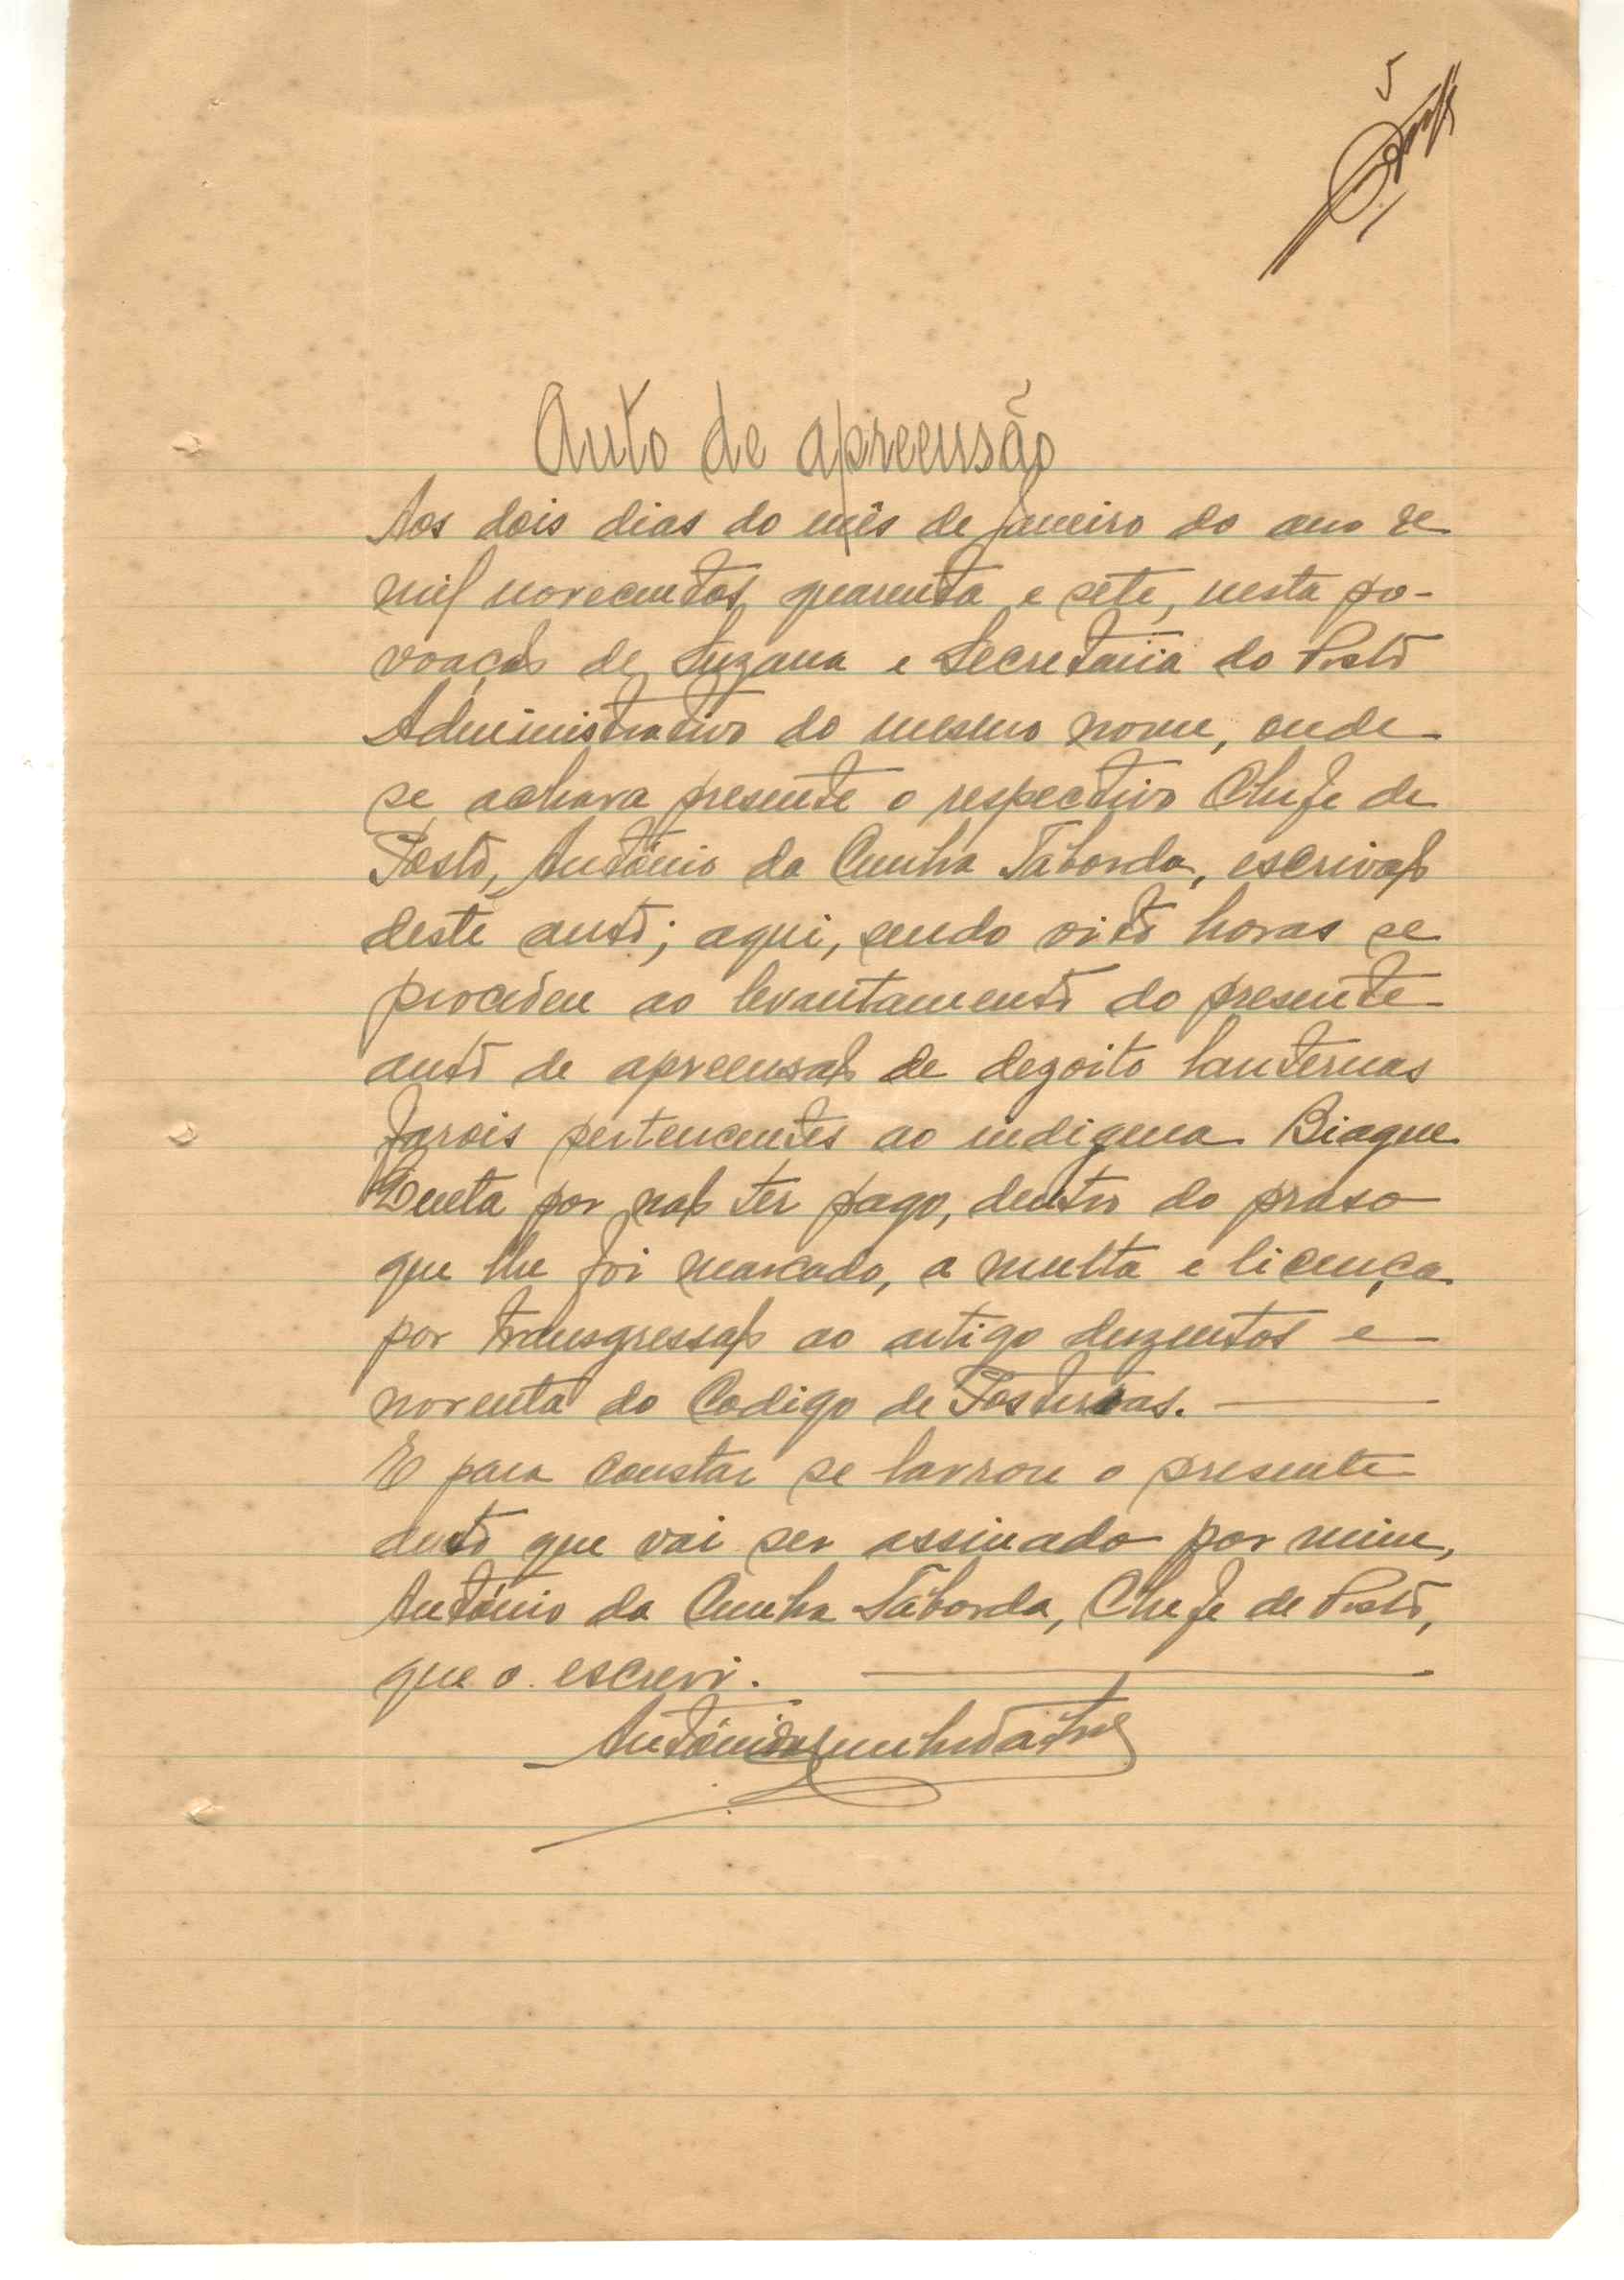 5
Auto de apreensão
Aos dois dias do mês de Janeiro do ano de
mil novecentos quarenta e sete, nesta po-
voação de Suzana e Secretaria do Posto
Administrativo do mesmo nome, onde
se achava presente o respectivo Chefe de
Posto, António da Cunha Táborda, escrivão
deste auto; aqui, sendo oito horas se
procedeu ao levantamento do presente
auto de apreensão de dezoito lanternas
farois pertencentes ao indigena Biague
por não ter pago, dentro do praso
que lhe foi marcado, a multa e licença
por transgressão ao artigo duzentos e
noventa do Codigo de Posturas.
E para constar se lavrou o presente
auto que vai ser assinado por mim,
António da Cunha Táborda, Chefe de Posto,
que o escrevi.
António da Cunha Táborda